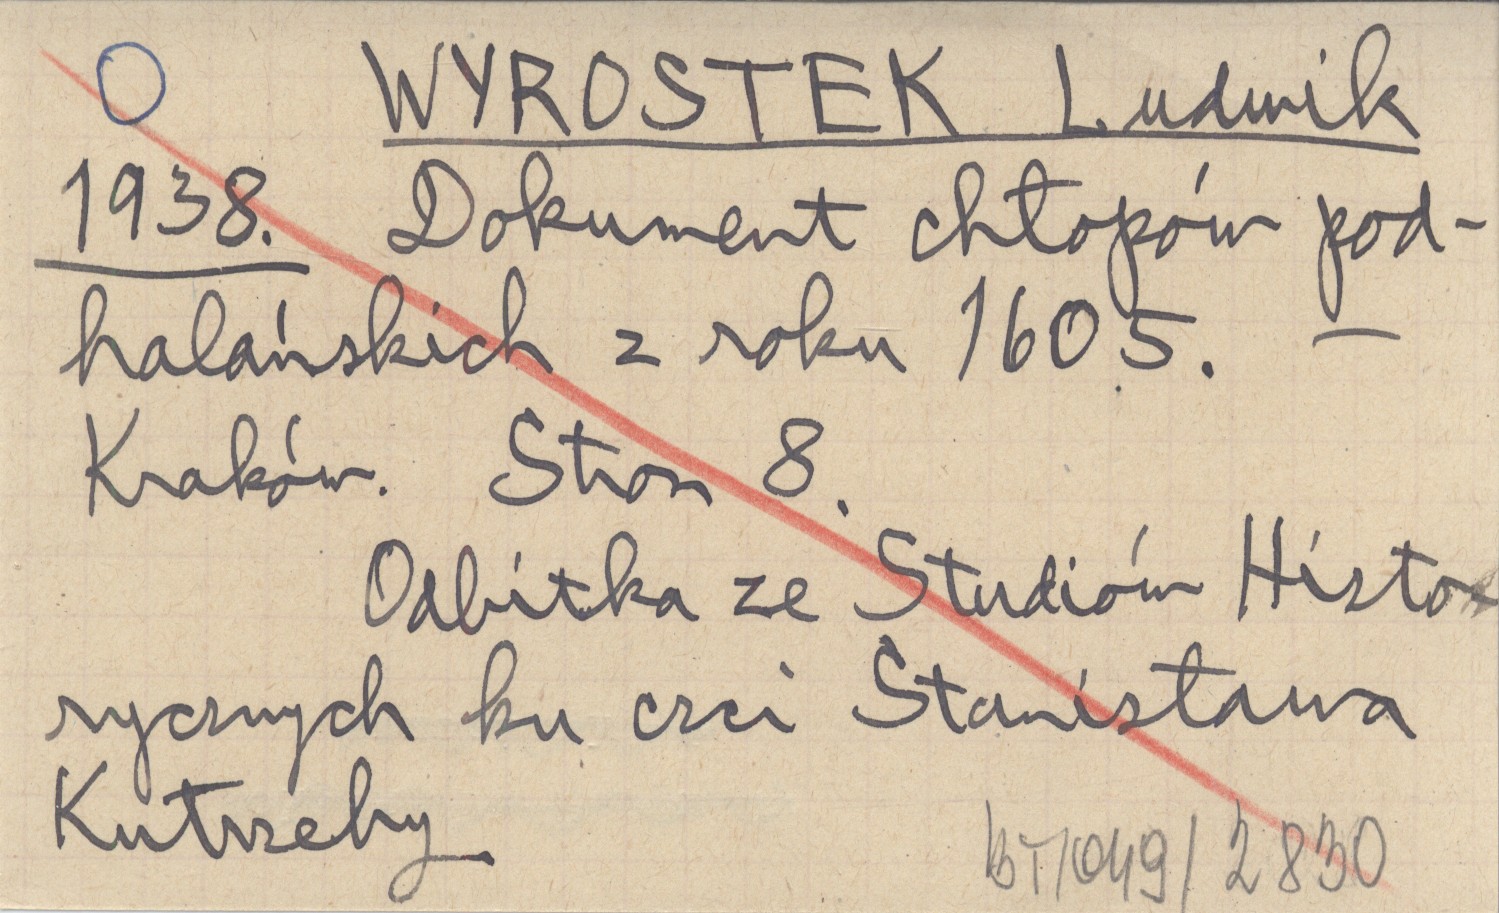 WYROSTEK Ludwik
1938. Dokument chłopów pod-
halańskich z roku 1605. —
Kraków. Stron 8.
Odbitka ze Studiów Histo-
rycznych ku czci Stanisława
Kutrzeby
BT/049/2830